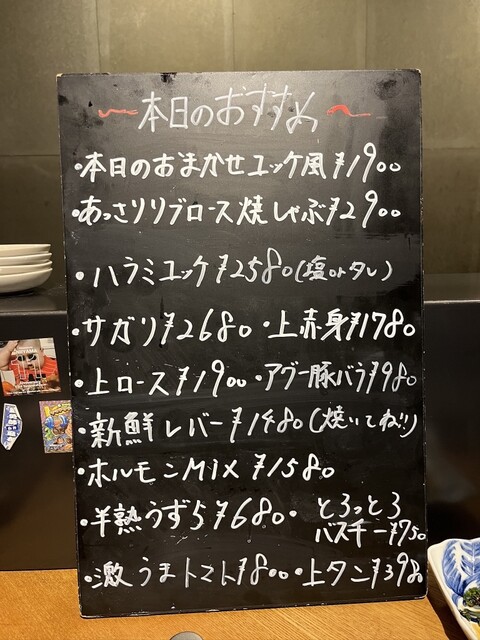 本日のおすすめ
・本日のおまかせユッケ風¥1900
・あっさりリブロース焼しゃぶ¥2900
・ハラミユッケ¥2580(塩orタレ)
・サガリ¥2680 ・上赤身¥1780
・上ロース¥1900 ・アグー豚バラ¥980
・新鮮レバー¥1480(焼いてね!!)
・ホルモンMIX ¥1580
・半熟うずら¥680 ・とろっとろバスチー¥750
・激うまトマト¥800 ・上タン¥3980